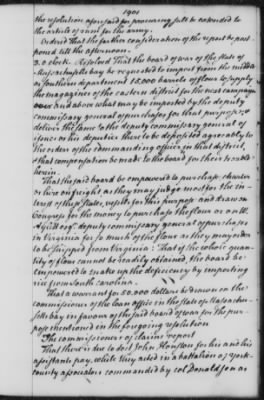 1901
the resolution aforesaid for procuring salt be extended to
the article of rum for the army.
Ordered That the further consideration of the report be post
poned till the afternoon.
3. o clock. Resolved That the board of war of the State of
Massachusetts bay be requested to import from the middle
or southern department 15,000 barrels of flour to supply
the magazine of the eastern district for the next campaign
over and above what may be imported by the deputy
commissary general of purchases for that purpose, &
deliver the same to the deputy commissary general of
issues or his deputies there to be deposited agreeably to
the orders of the commanding officer in that district,
& that compensation be made to the board for their trouble
herein.
That the said board be empowered to purchase charter
or hire outright as they may judge most for the in-
terest of these States, vessels for this purpose and draw on
Congress for the money to purchase the flour or on W.
Aylett esqr. deputy commissary general of purchases
in Virginia for so much of the flour as they may order
to be shipped from Virginia: That if the whole quan-
tity of flour cannot be readily obtained, the board be
empowered to make up the deficiency by importing
rice from South carolina.
That a warrant for 50,000 dollars be drawn on the
commissioner of the loan office in the state of Massachu-
setts bay in favour of the said board of war for the pur-
pose mentioned in the foregoing resolution
The commissioners of claims report
That there is due to doctr John Houston for his and his
assistants pay, while they acted in a battalion of York-
county associators commanded by col Donaldson as